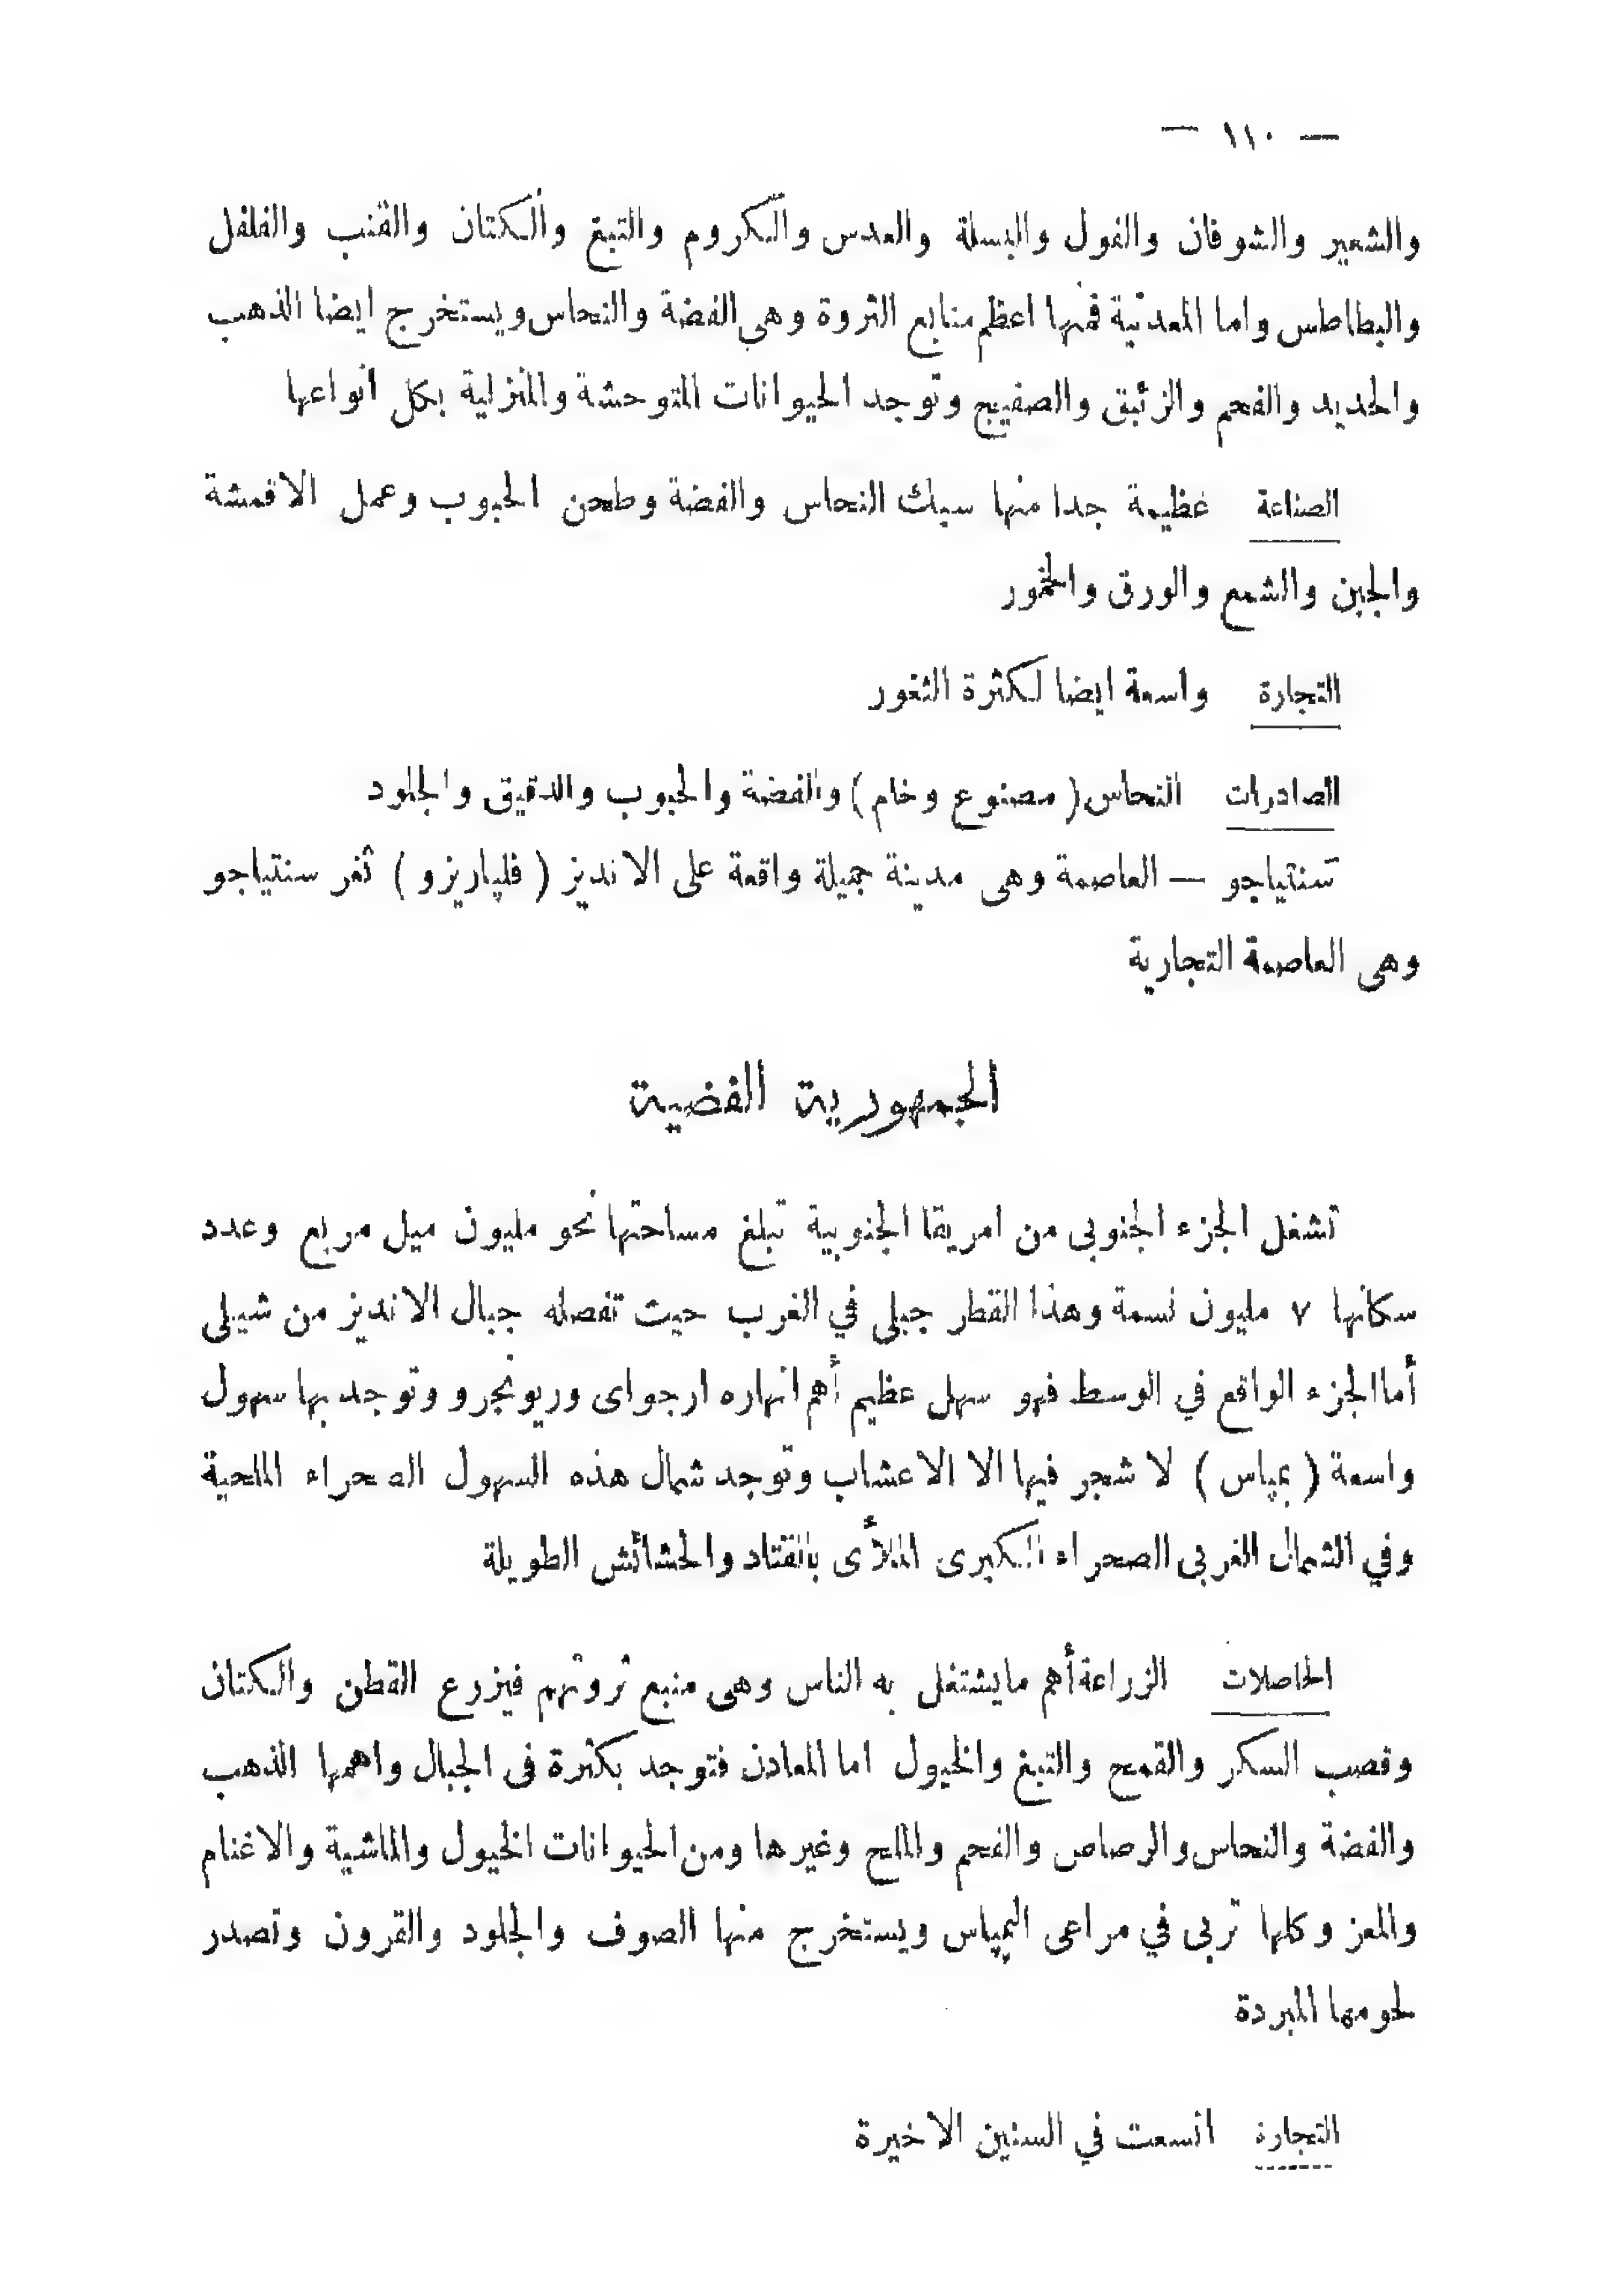 — ١١٠ —
والشعير والشوفان والفول والبسلة والعدس والكروم والتبغ والكتان والقنب والفلفل
والبطاطس واما المعدنية فمنها اعظم منابع الثروة وهى الفضة والنحاس ويستخرج ايضا الذهب
والحديد والفحم والزئبق والصفيح وتوجد الحيوانات المتوحشة والمنزلية بكل انواعها
الصناعة عظيمة جدا منها سبك النحاس والفضة وطحن الحبوب وعمل الاقمشة
والجبن والشمع والورق والخمور
التجارة واسعة ايضا لكثرة الثغور
الصادرات النحاس ( مصنوع وخام ) والفضة والحبوب والدقيق والجلود
سنتياجو — العاصمة وهى مدينة جميلة واقعة على الانديز ( فلپاريزو ) ثغر سنتياجو
وهى العاصمة التجارية
الجمهورية الفضية
تشغل الجزء الجنوبى من امريقا الجنوبية تبلغ مساحتها نحو مليون ميل مربع وعدد
سكانها ٧ مليون نسمة وهذا القطر جبلى في الغرب حيث تفصله جبال الانديز من شيلى
أما الجزء الواقع في الوسط فهو سهل عظيم أهم انهاره ارجواى وريونجرو وتوجد بها سهول
واسعة ( بمپاس ) لا شجر فيها الا الاعشاب وتوجد شمال هذه السهول الصحراء الملحية
وفي الشمال الغربى الصحراء الكبرى الملأى بالقتاد والحشائش الطويلة
الحاصلات الزراعة أهم مايشتغل به الناس وهى منبع ثروتهم فيزرع القطن والكتان
وقصب السكر والقمح والتبغ والخيول اما المعادن فتوجد بكثرة فى الجبال واهمها الذهب
والفضة والنحاس والرصاص والفحم والملح وغيرها ومن الحيوانات الخيول والماشية والاغنام
والمعز وكلها تربى في مراعى الپمپاس ويستخرج منها الصوف والجلود والقرون وتصدر
لحومها المبردة
التجارة اتسعت في السنين الاخيرة